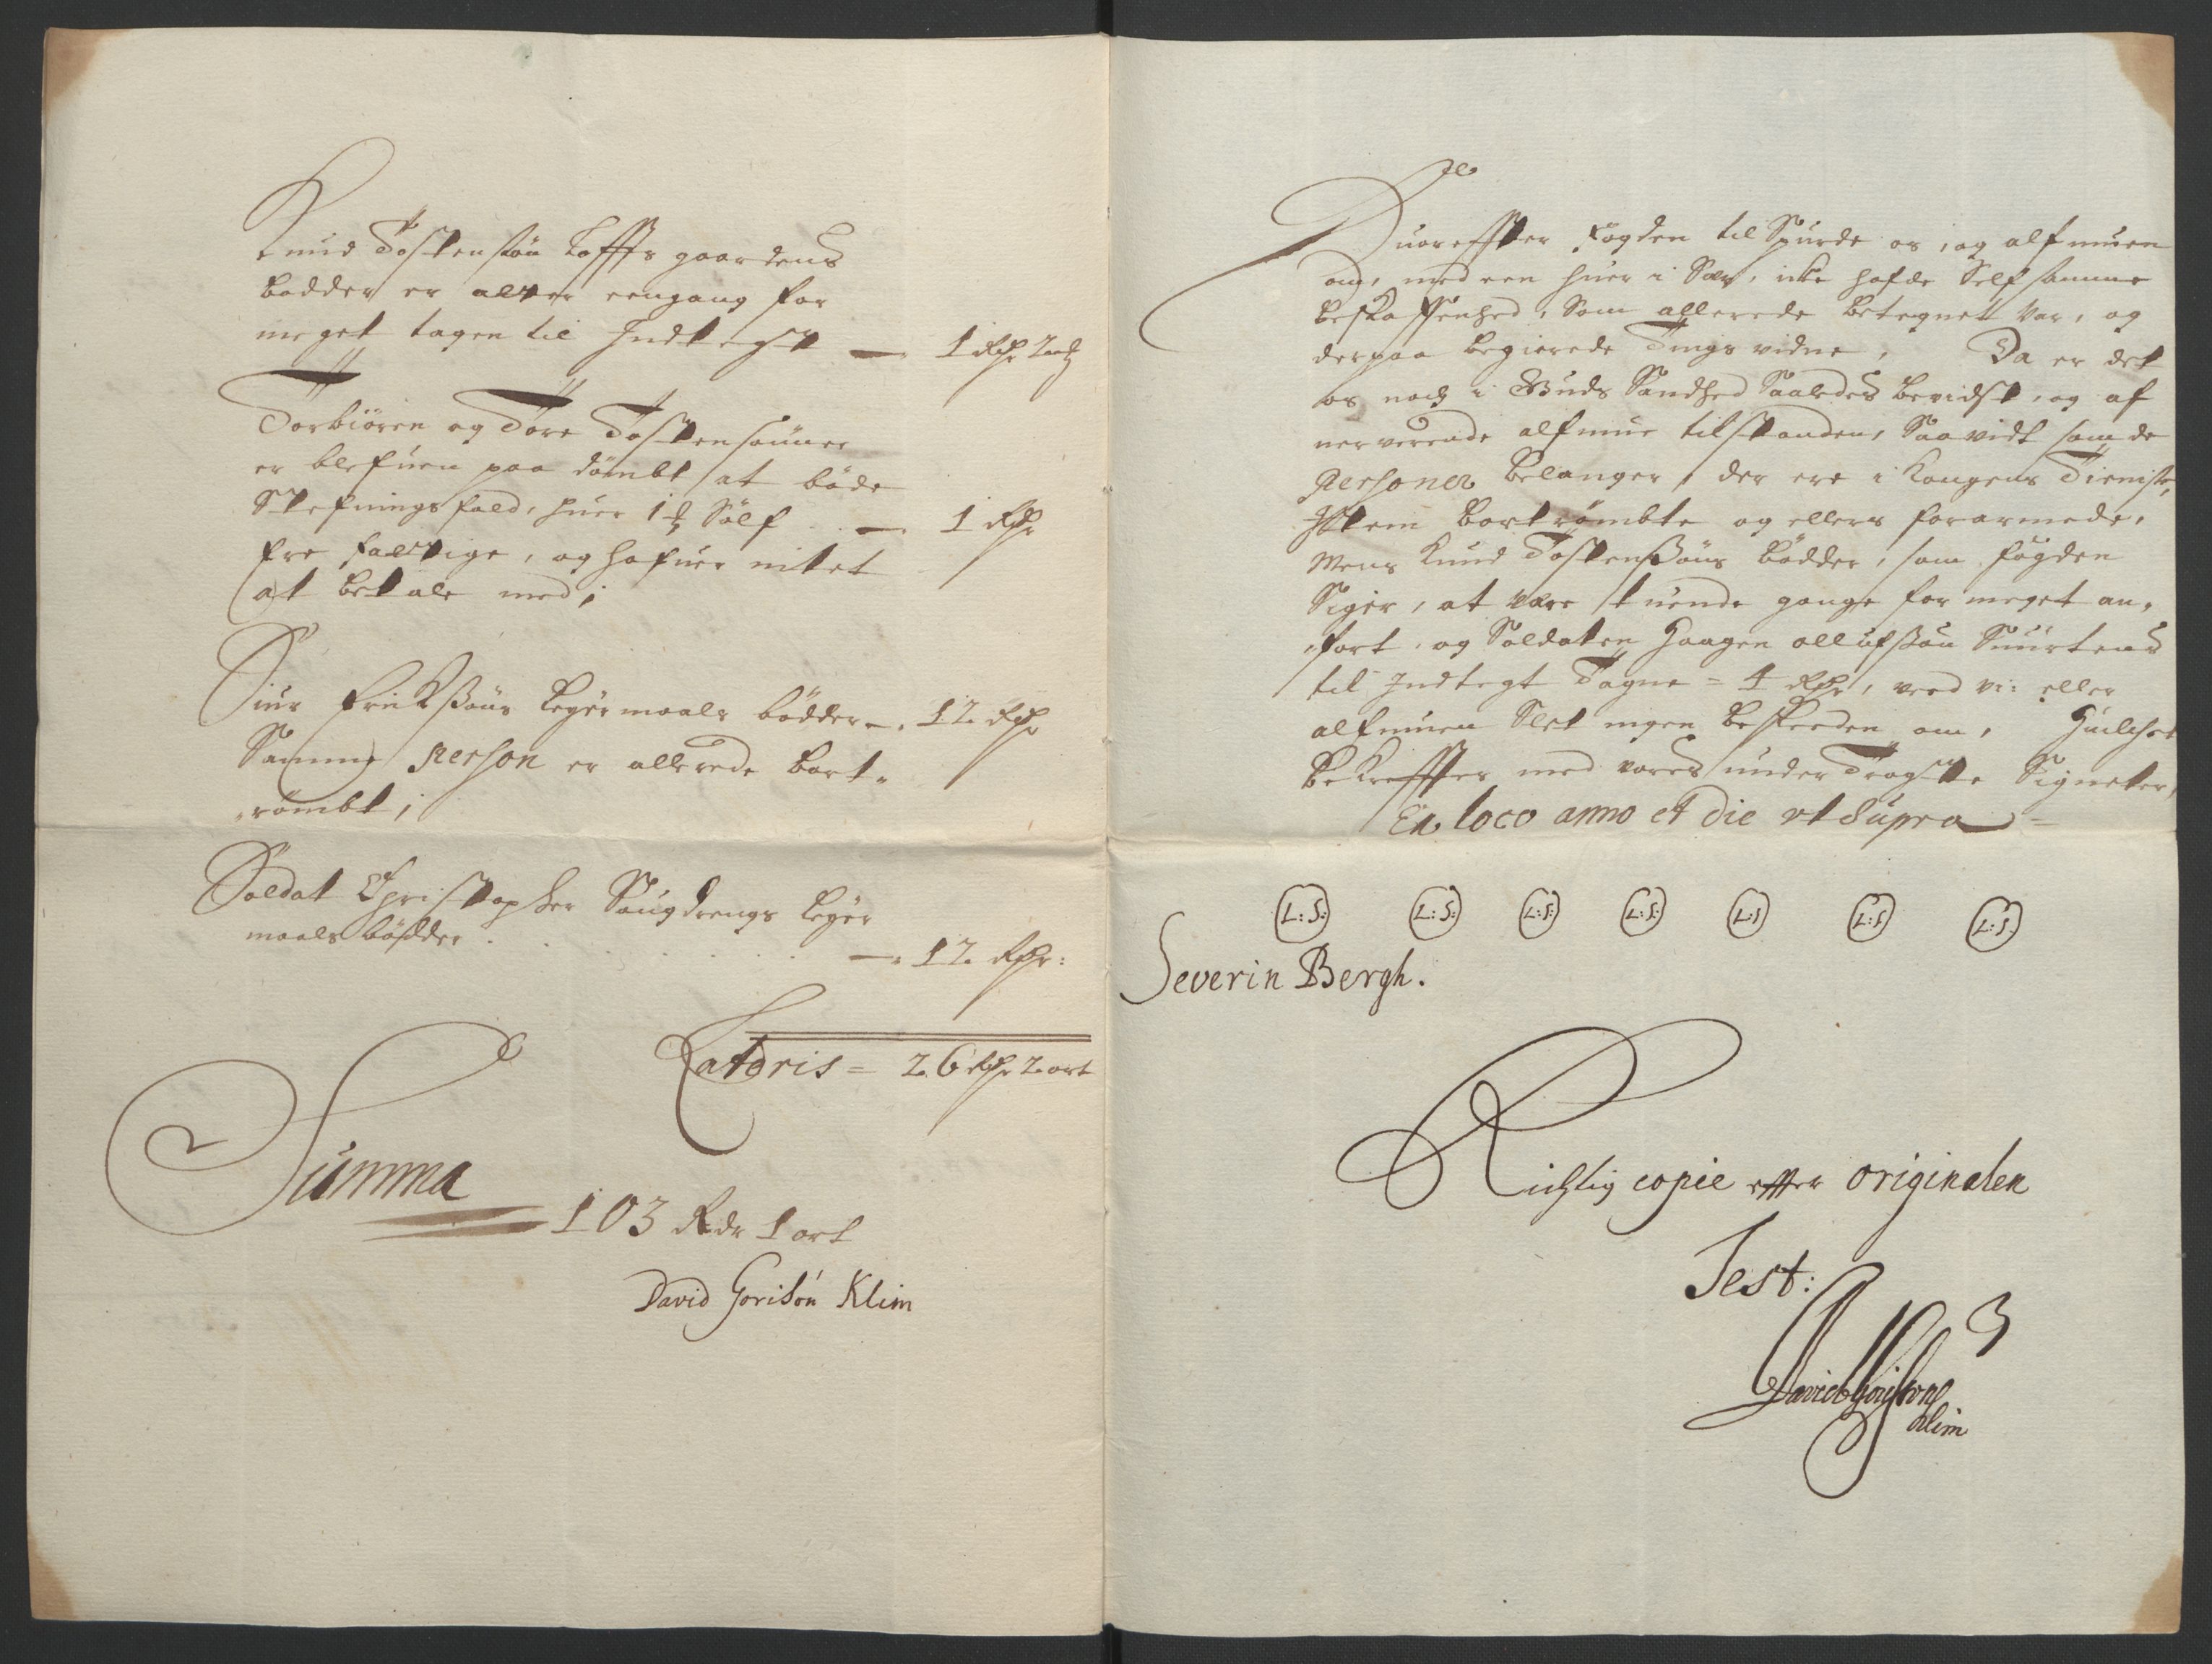 Knud Tostensøn Tofftsgaardens
bødder er alt er eengang for
meget tagen til Indtegt — 1 Rdr 2 ort
Torbiørn og Tore Tostensønner
er blefuen paa dømbt at bøde
Stefningsfald, huer 1 ℔ Sølf — 1 Rdr
Ere fattige, og hafuer intet
at betale med;
Siur Erikssøns Leyermaals bødder — 12 Rdr
Samme Person er allerede bort-
-rømbt;
Soldat Christopher Leyer
maals bødder . . . . . — 12 Rdr:
Lateris = 26 Rdr 2 ort
Summa
103 Rdr 1 ort
David Gorisøn Klim
Huoreffter Fogden tilSpurde os, og alfmuen
om, med een huer i Sær, icke hafde Self samme
beskaffenhed, Som allerede betegnet var, og
derpaa begierede Tings vidne, Da er det
os nock i Guds Sandhed Saaledes bevidst, og af
nerverende alfmue tilstanden, Saavidt som de
Personer belanger, der ere i Kongens Tieniste,
Item bortrømbte og ellers forarmede,
Mens Knud Tostenssøns bødder, som fogden
Siger, at være tuende gange for meget an-
-ført, og Soldaten Haagen ollufssøn
til Indtegt Tagne = 4 Rdr, veed vi: eller
alfmuen Slet ingen beskeeden om, Huilchet
bekreffter med vores underTrogte Signeter,
In loco anno et die ut Supra =
L: S: L: S: L: S: L: S: L: S L: S L: S.
Severin Bergh.
Richtig copie effter originalen
Test:
David Gorissøn
Klim